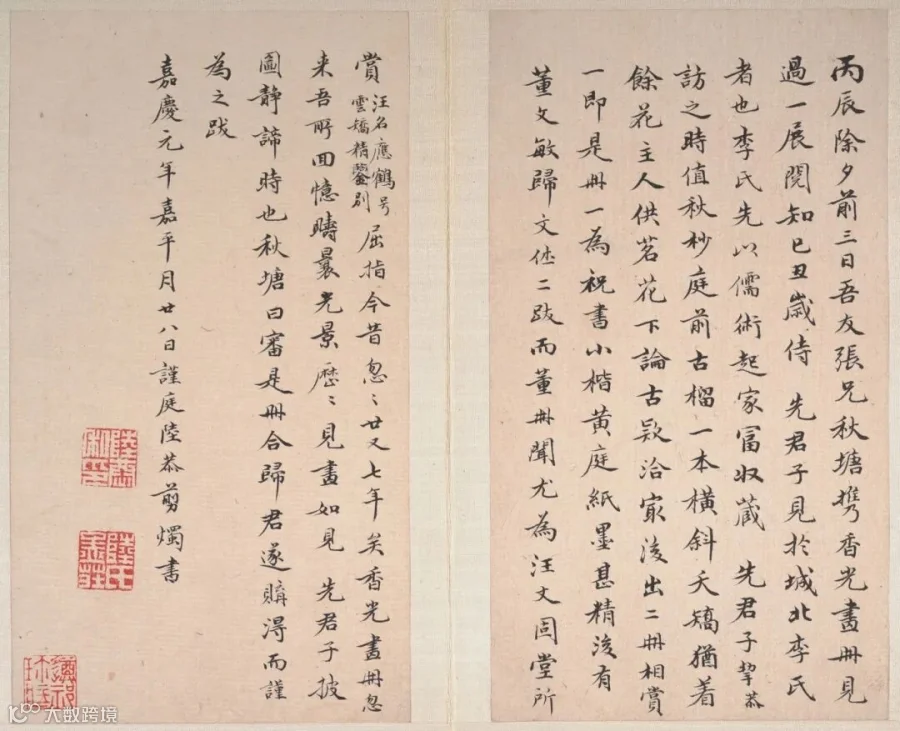 丙辰除夕前三日吾友張兄秋塘携香光畫冊見
過一展閱知己丑歲侍 先君子見於城北李氏
者也李氏先以儒術起家富收藏 先君子挈恭
訪之時值秋杪庭前古榴一本橫斜夭矯猶着
餘花主人供茗花下論古欵洽寂後出二冊相賞
一即是冊一為祝書小楷黃庭紙墨甚精後有
董文敏歸文休二跋而董冊聞尤為汪文固堂所
賞 汪名應鶴号
雲矯精鑒別
屈指今昔忽〻廿又七年矣香光畫冊忽
来吾所回憶疇曩光景歷〻見畫如見 先君子披
圖靜諦時也秋塘曰審是冊合歸君遂購淂而謹
為之跋
嘉慶元年嘉平月廿八日謹庭陸恭剪燭書
大數跨境